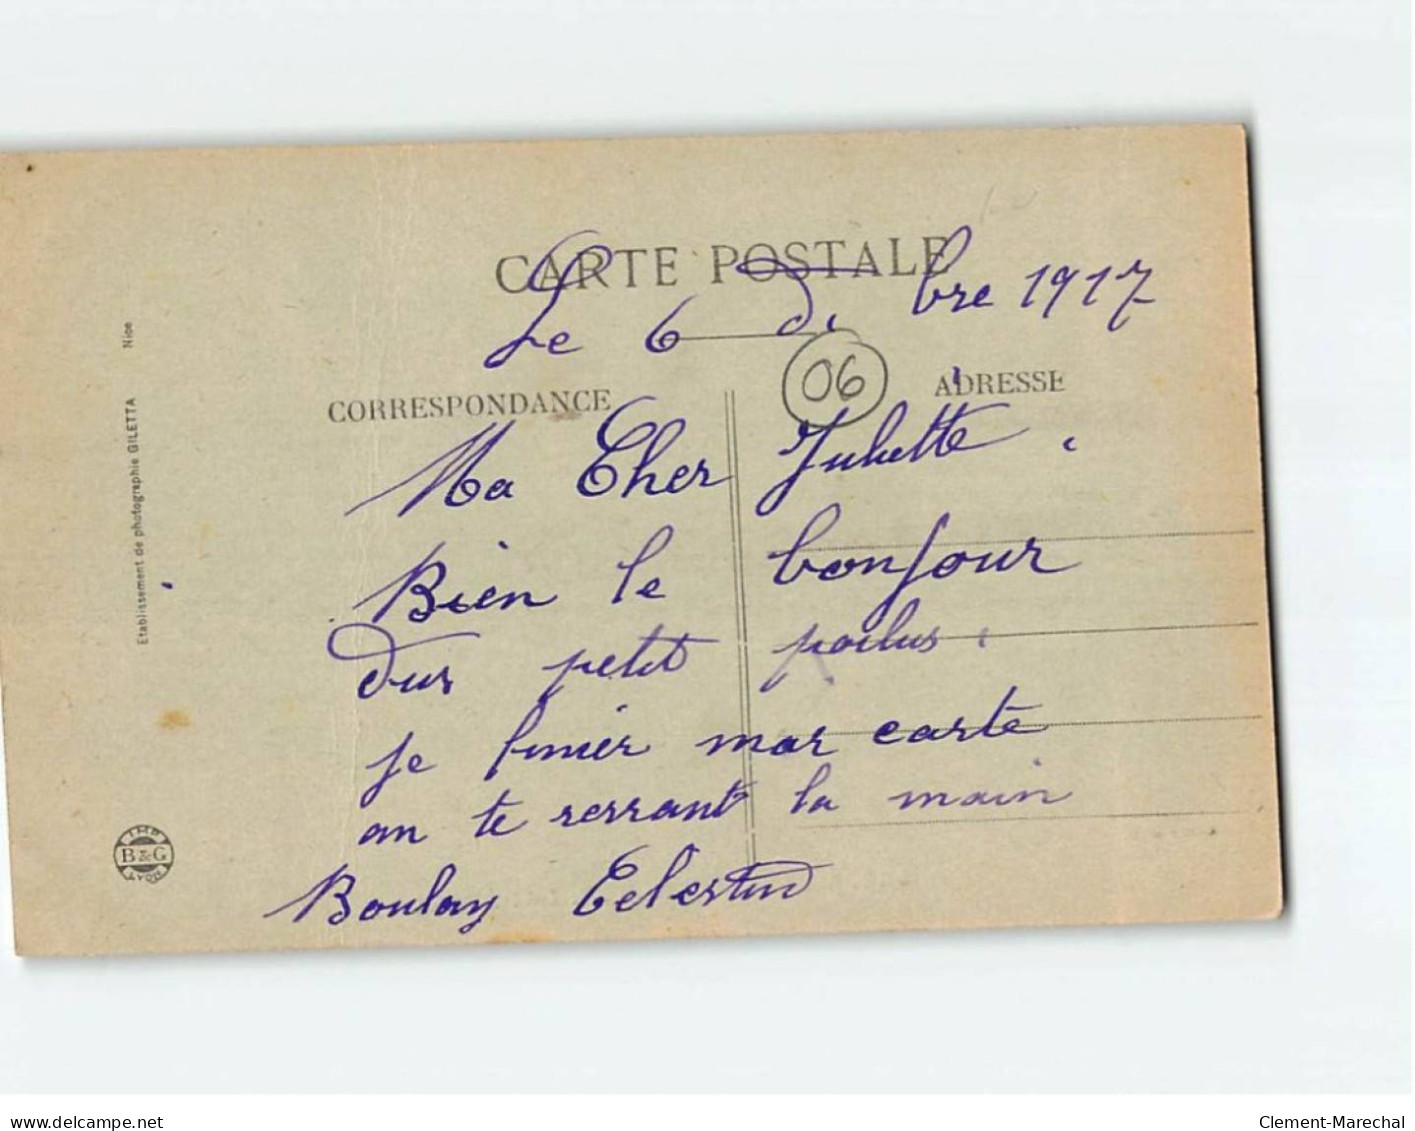 CARTE POSTALE
Le 6 Di bre 1917
06
CORRESPONDANCE
ADRESSE
Ma Cher Juliette.
Bien le bonjour
Dus petit poilus.
je finier mar carte
an te serrant la main
Boulay Celestin
Etablissement de photographie GILETTA Nice
IMP.
B & G
delcampe.net
Clement-Marechal